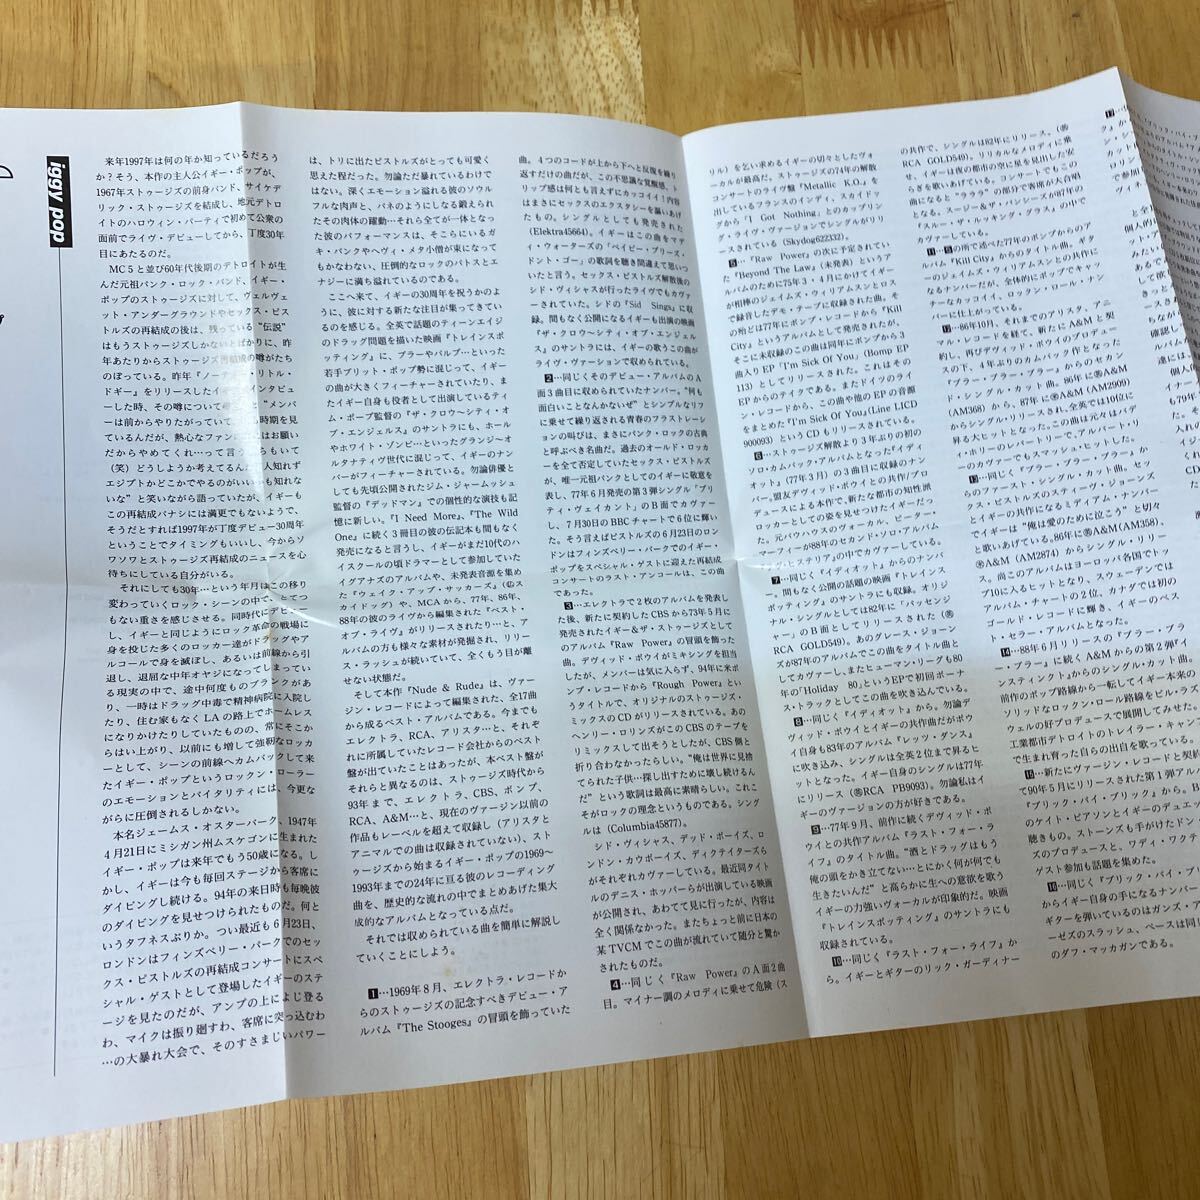 iggy pop
来年1997年は何の年か知っているだろう
か？そう、本作の主人公イギー・ポップが、
1967年ストゥージズの前身バンド、サイケデ
リック・ストゥージズを結成し、地元デトロ
イトのハロウィン・パーティで初めて公衆の
面前でライヴ・デビューしてから、丁度30年
目にあたるのだ。
MC5と並び60年代後期のデトロイトが生
んだ元祖パンク・ロック・バンド、イギー・
ポップのストゥージズに対して、ヴェルヴェ
ット・アンダーグラウンドやセックス・ピス
トルズの再結成の後は、残っている“伝説”
はもうストゥージズしかないとばかりに、昨
年あたりからストゥージズ再結成の噂がたち
のぼっている。昨年『ノーティ・リトル・
ドギー』をリリースしたイギーにインタビュ
ーした時、その噂について
ーは前からやりたがっていて
ているんだが、熱心なファン
だからやめてくれ…って言
（笑）どうしようか考えてるん
エジプトかどこかでやるのがいい
ない”と笑いながら語っていたが、イギーも
この再結成バナシには満更でもないようで、
そうだとすれば1997年が丁度デビュー30周年
ということでタイミングもいいし、今からソ
ワソワとストゥージズ再結成のニュースを心
待ちにしている自分がいる。
それにしても30年…という年月はこの移り
変わっていくロック・シーンの中で、とてつ
もない重さを感じさせる。同時代にデビュー
し、イギーと同じようにロック革命の戦場に
身を投じた多くのロッカー達がドラッグやア
ルコールで身を滅ぼし、あるいは前線から引
退し、退屈な中年オヤジになってしまってい
る現実の中で、途中何度ものブランクがあ
り、一時はドラッグ中毒で精神病院に入院し
たり、住む家もなくLAの路上でホームレス
になりかけたりしていたものの、常にそこか
らはい上がり、以前にも増して強靭なロッカ
ーとして、シーンの前線へカムバックして来
たイギー・ポップというロックン・ローラー
のエモーションとバイタリティには、今更な
がらに圧倒されるしかない。
本名ジェームス・オスターバーク、1947年
4月21日にミシガン州ムスケゴンに生まれた
イギー・ポップは来年でもう50歳になる。し
かし、イギーは今も毎回ステージから客席に
ダイビングし続ける。94年の来日時も毎晩彼
のダイビングを見せつけられたものだ。何と
いうタフネスぶりか。つい最近も6月23日、
ロンドンはフィンズベリー・パークでのセッ
クス・ピストルズの再結成コンサートにスペ
シャル・ゲストとして登場したイギーのステ
ージを見たのだが、アンプの上によじ登る
わ、マイクは振り廻すわ、客席に突っ込むわ
…の大暴れ大会で、そのすさまじいパワー
は、トリに出たピストルズがとっても可愛く
思えた程だった。勿論ただ暴れているわけで
はない。深くエモーション溢れる彼のソウル
フルな肉声と、バネのようにしなる鍛えられ
たその肉体の躍動…それら全てが一体となっ
た彼のパフォーマンスは、そこらにいるガ
キ・パンクやヘヴィ・メタ小僧が束になって
もかなわない、圧倒的なロックのパトスとエ
ナジーに満ち溢れているのである。
ここへ来て、イギーの30周年を祝うかのよ
うに、彼に対する新たな注目が集ってきてい
るのを感じる。全英で話題のティーンエイジ
のドラッグ問題を描いた映画『トレインスポ
ッティング』に、ブラーやパルプ…といった
若手ブリット・ポップ勢に混じって、イギー
の曲が大きくフィーチャーされていたり、ま
たイギー自身も役者として出演しているティ
ム・ポープ監督の『ザ・クロウ〜シティ・オ
ブ・エンジェルス』のサントラにも、ホール
やホワイト・ゾンビ…といったグランジ〜オ
ルタナティヴ世代に混じって、イギーのナン
バーがフィーチャーされている。勿論俳優と
しても先頃公開されたジム・ジャームッシュ
監督の『デッドマン』での個性的な演技も記
憶に新しい。『I Need More』、『The Wild
One』に続く3冊目の彼の伝記本も間もなく
発売になると言うし、イギーがまだ10代のハ
イスクールの頃ドラマーとして参加していた
イグアナズのアルバムや、未発表音源を集め
た『ウェイク・アップ・サッカーズ』（仏ス
カイドッグ）や、MCAから、77年、86年、
88年の彼のライヴから編集された『ベスト・
オブ・ライヴ』がリリースされたり…と、ア
ルバムの方も様々な素材が発掘され、リリー
ス・ラッシュが続いていて、全くもう目が離
せない状態だ。
そして本作『Nude & Rude』は、ヴァー
ジン・レコードによって編集された、全17曲
から成るベスト・アルバムである。今までも
エレクトラ、RCA、アリスタ…と、それぞ
れに所属していたレコード会社からのベスト
盤が出ていたことはあったが、本ベスト盤が
それらと異なるのは、ストゥージズ時代から
93年まで、エレクトラ、CBS、ボンプ、
RCA、A&M…と、現在のヴァージン以前の
作品もレーベルを超えて収録し（アリスタと
アニマルでの曲は収録されていない）、スト
ゥージズから始まるイギー・ポップの1969〜
1993年までの24年に亘る彼のレコーディング
曲を、歴史的な流れの中でまとめあげた集大
成的なアルバムとなっている点だ。
それでは収められている曲を簡単に解説し
ていくことにしよう。
1…1969年8月、エレクトラ・レコードか
らのストゥージズの記念すべきデビュー・ア
ルバム『The Stooges』の冒頭を飾っていた
曲。4つのコードが上から下へと反復を繰り
返すだけの曲だが、この不思議な覚醒感、ト
リップ感は何とも言えずにカッコイイ！内容
はまさにセックスのエクスタシーを謳いあげ
たもの。シングルとしても発売された
(Elektra45664)。イギーはこの曲をマデ
ィ・ウォーターズの「ベイビー・プリーズ・
ドント・ゴー」の歌詞を聴き間違えて思いつ
いたと言う。セックス・ピストルズ解散後の
シド・ヴィシャスが行ったライヴでもカヴァ
ーされていた。シドの『Sid Sings』に収
録。間もなく公開になるイギーも出演の映画
『ザ・クロウ〜シティ・オブ・エンジェル
ス』のサントラには、イギーの歌うこの曲が
ライヴ・ヴァージョンで収められている。
2…同じくそのデビュー・アルバムのA
面3曲目に収められていたナンバー。“何も
面白いことなんかないぜ”とシンプルなリフ
に乗せて繰り返される青春のフラストレーシ
ョンの叫びは、まさにパンク・ロックの古典
と呼ぶべき名曲だ。過去のオールド・ロッカ
ーを全て否定していたセックス・ピストルズ
が、唯一元祖パンクとしてのイギーに敬意を
表し、77年6月発売の第3弾シングル「プリ
ティ・ヴェイカント」のB面でカヴァー
し、7月30日のBBCチャートで6位に輝い
た。そう言えばピストルズの6月23日のロン
ドンはフィンズベリー・パークでのイギー・
ポップをスペシャル・ゲストに迎えた再結成
コンサートのラスト・アンコールは、この曲
であった。
3…エレクトラで2枚のアルバムを発表し
た後、新たに契約したCBSから73年5月に
発売されたイギー＆ザ・ストゥージズとして
のアルバム『Raw Power』の冒頭を飾った
曲。デヴィッド・ボウイがミキシングを担当
したが、メンバーは気に入らず、94年に米ボ
ンプ・レコードから『Rough Power』とい
うタイトルで、オリジナルのストゥージズ・
ミックスのCDがリリースされている。あの
ヘンリー・ロリンズがこのCBSのテープを
リミックスして出そうとしたが、CBS側と
折り合わなかったらしい。“俺は世界に見捨
てられた子供…探し出すために壊し続けるん
だ”という歌詞は最高に素晴らしい。これこ
そがロックの理念というものである。シング
ルは（Columbia45877)。
シド・ヴィシャス、デッド・ボーイズ、ロ
ンドン・カウボーイズ、ディクテイターズら
がそれぞれカヴァーしている。最近同タイト
ルのデニス・ホッパーらが出演している映画
が公開され、あわてて見に行ったが、内容は
全く関係なかった。またちょっと前に日本の
某TVCMでこの曲が流れていて随分と驚か
されたものだ。
4…同じく『Raw Power』のA面2曲
目。マイナー調のメロディに乗せて危険（ス
リル）を乞い求めるイギーの切々としたヴォ
ーカルが最高だ。ストゥージズの74年の解散
コンサートのライヴ盤『Metallic K.O.』を
出しているフランスのインディ、スカイドッ
グから「I Got Nothing」とのカップリン
グ・ライヴ・ヴァージョンでシングルがリリ
ースされている（Skydog622332)。
5…『Raw Power』の次に予定されてい
た『Beyond The Law』（未発表）というア
ルバムのために75年3・4月にかけてイギー
が相棒のジェイムス・ウィリアムスンとロス
で録音したデモ・テープに収録された曲。そ
の殆どは77年にボンプ・レコードから『Kill
City』というアルバムとして発売されたが、
そこに未収録のこの曲は同年にボンプから3
曲入りEP「I'm Sick Of You」(Bomp EP
113）としてリリースされた。これはその
EPからのテイクである。またドイツのライ
ン・レコードから、この曲や他のEPの音源
をまとめた『I'm Sick Of You』(Line LICD
900093）というCDも リリースされている。
6…ストゥージズ解散より3年ぶりの初の
ソロ・カムバック・アルバムとなった『イディ
オット』（77年3月）の3曲目に収録のナン
バー。盟友デヴィッド・ボウイとの共作／プロ
デュースによる本作で、新たな都市の知性派
ロッカーとしての姿を見せつけたイギーだっ
た。元バウハウスのヴォーカル、ピーター・
マーフィーが88年のセカンド・ソロ・アルバム
『ラヴ・ヒステリア』の中でカヴァーしている。
7…同じく『イディオット』からのナンバ
ー。間もなく公開の話題の映画『トレインス
ポッティング』のサントラにも収録。オリジ
ナル・シングルとしては82年に「パッセンジ
ャー」のB面としてリリースされた（英
RCA GOLD549)。あのグレース・ジョーン
ズが87年のアルバムでこの曲をタイトル曲と
してカヴァーし、またヒューマン・リーグも80
年の「Holiday 80」というEPで初回ボーナ
ス・トラックとしてこの曲を吹き込んでいる。
8…同じく『イディオット』から。勿論デ
ヴィッド・ボウイとイギーの共作曲だがボウ
イ自身も83年のアルバム『レッツ・ダンス』
に吹き込み、シングルは全英2位まで昇るヒ
ットとなった。イギー自身のシングルは77年
にリリース（英RCA PB9093)。勿論私はイ
ギーのヴァージョンの方が好きである。
9…77年9月、前作に続くデヴィッド・ボ
ウイとの共作アルバム『ラスト・フォー・ラ
イフ』のタイトル曲。“酒とドラッグはもう
俺の頭をかき立てない…とにかく何が何でも
生きたいんだ”と高らかに生への意欲を歌う
イギーの力強いヴォーカルが印象的だ。映画
『トレインスポッティング』のサントラにも
収録されている。
10…同じく『ラスト・フォー・ライフ』か
ら。イギーとギターのリック・ガーディナー
の共作で、シングルは82年にリリース。（英
RCA GOLD549)。リリカルなメロディに乗
せて、イギーは夜の都市の空に星を見出した安
らぎを歌いあげている。コンサートでもこの
曲になると“ララ”の部分で客席が大合唱
となる。スージー＆ザ・バンシーズが87年の
『スルー・ザ・ルッキング・グラス』の中で
カヴァーしている。
11…5の所で述べた77年のボンプからのア
ルバム『Kill City』からのタイトル曲。イギ
ーのジェイムス・ウィリアムスンとの共作に
なるナンバーだが、全体的にポップでキャッ
チーなカッコイイ、ロックン・ロール・ナン
バーに仕上がっている。
12…86年10月、それまでのアリスタ、アニ
マル・レコードを経て、新たにA&Mと契
約し、再びデヴィッド・ボウイのプロデュー
スの下、4年ぶりのカムバック作となった
『ブラー・ブラー・ブラー』からのセカン
ド・シングル・カット曲。86年に英A&M
(AM368) から、87年に米A&M (AM2909)
からシングル・リリースされ、全英では10位に
昇る大ヒットとなった。この曲は元々はバデ
ィ・ホリーのレパートリーで、アルバート・リ
ーのカヴァーでもスマッシュ・ヒットした。
13…同じく『ブラー・ブラー・ブラー』か
らのファースト・シングル・カット曲。セッ
クス・ピストルズのスティーヴ・ジョーンズ
とイギーの共作になるミディアム・ナンバー
でイギーは“俺は愛のために泣こう”と切々
と歌いあげている。86年に英A&M (AM358)、
米A&M (AM2874) からシングル・リリー
ス。尚このアルバムはヨーロッパ各国でトッ
プ10に入るヒットとなり、スウェーデンでは
アルバム・チャートの2位、カナダでは初の
ゴールド・レコードに輝き、イギーのベス
ト・セラー・アルバムとなった。
14…88年6月リリースの『ブラー・ブラ
ー・ブラー』に続くA&Mからの第2弾『イ
ンスティンクト』からのシングル・カット曲。
前作のポップ路線から一転してイギー本来の
ソリッドなロックン・ロール路線をビル・ラズ
ウェルの好プロデュースで展開してみせた。
工業都市デトロイトのトレイラー・キャン
で生まれ育った自らの出自を歌っている。
15…新たにヴァージン・レコードと契約
て90年5月にリリースされた第1弾アル
『ブリック・バイ・ブリック』から。B
のケイト・ピアソンとイギーのデュエ
聴きもの。ストーンズも手がけたドン・
ズのプロデュースと、ワディ・ワクテ
ゲスト参加も話題を集めた。
16…同じく『ブリック・バイ・ブ
からイギー自身の手になるナンバー
ギターを弾いているのはガンズ・ア
ーゼズのスラッシュ、ベースは同じ
のダフ・マッカガンである。